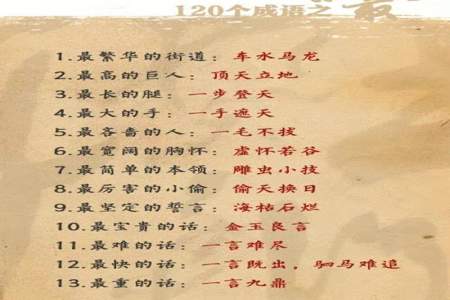 120个成语之"最"
1.最繁华的街道：车水马龙
2.最高的巨人：顶天立地
3.最长的腿：一步登天
4.最大的手：一手遮天
5.最吝啬的人：一毛不拔
6.最宽阔的胸怀：虚怀若谷
7.最简单的本领：雕虫小技
8.最厉害的小偷：偷天换日
9.最坚定的誓言：海枯石烂
10.最宝贵的话：金玉良言
11.最难的话：一言难尽
12.最快的话：一言既出，驷马难追
13.最重的话：一言九鼎